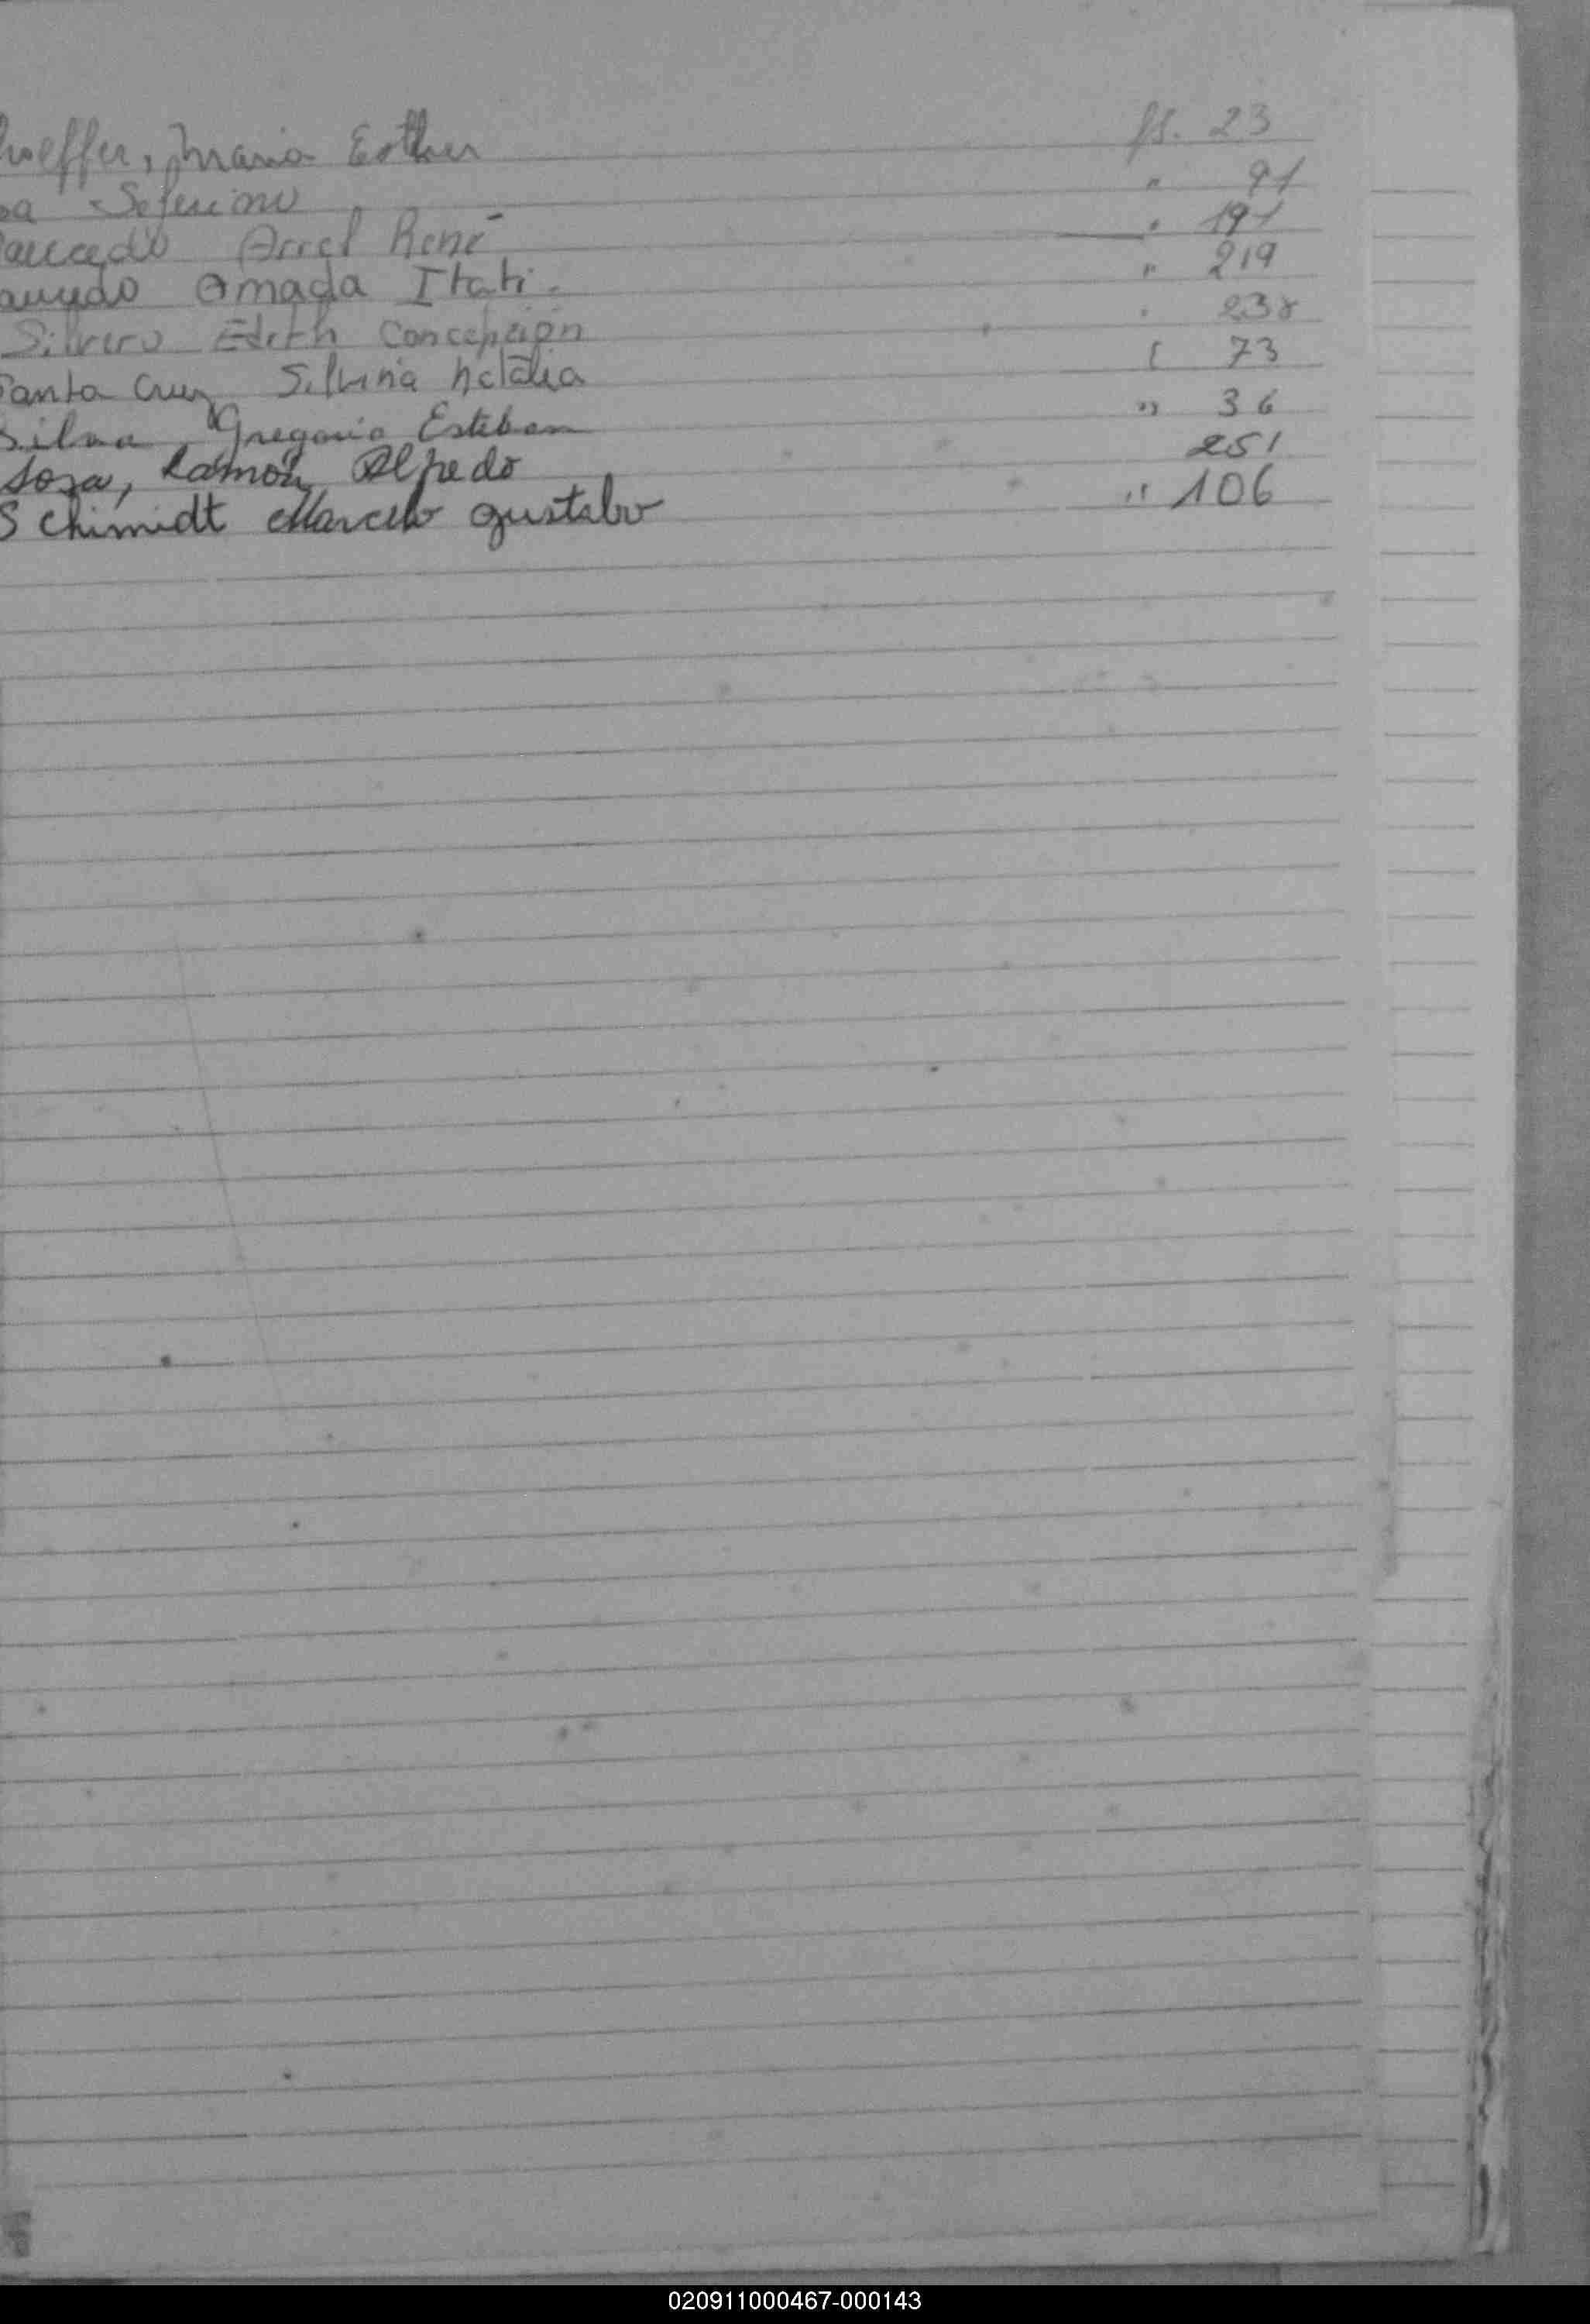 hoeffer, Maria Esther fs. 23
sa Seferino " 91
aucedo Ariel René " 191
aucedo Amada Itati. " 219
Silvero Edith Concepción " 238
Santa Cruz Silvina Natalia " 73
Silva, Gregorio Esteban " 36
Sosa, Ramón Alfredo 251
Schimidt Marcelo Gustabo " 106
020911000467-000143